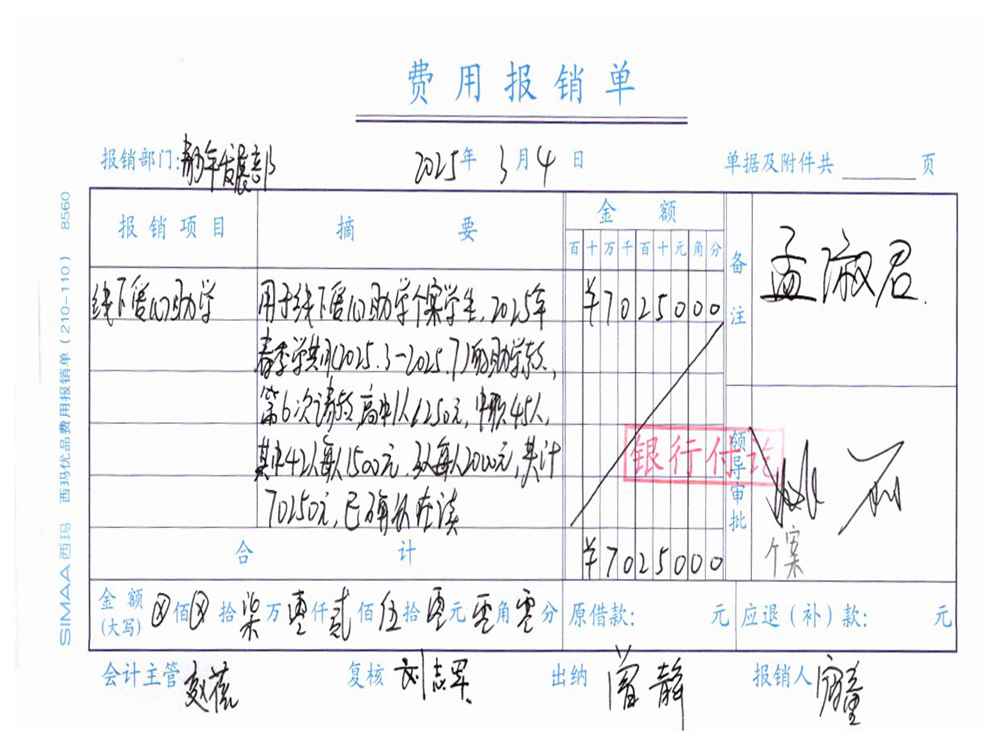 费用报销单
报销部门:青年发展部 2025年 3月4日 单据及附件共 页
报销项目 摘要 金额 备注
百十万千百十元角分
孟淑君.
线下爱心助学 用于线下爱心助学个案学生,2025年 ¥7025000
春季学期(2025.3-2025.7)的助学款,
第6次请款,高中1人1250元,中职45人,
其中42人每人1500元,3人每人2000元,共计
70250元,已确认在读
银行付讫
领导审批
个案
合计 ¥7025000
金额(大写) ⊗佰⊗拾柒万零仟贰佰伍拾零元零角零分 原借款: 元 应退(补)款: 元
会计主管 赵蓓 复核 刘志军 出纳 曾静 报销人
SIMAA西玛 西玛优品费用报销单(210-110) 8560